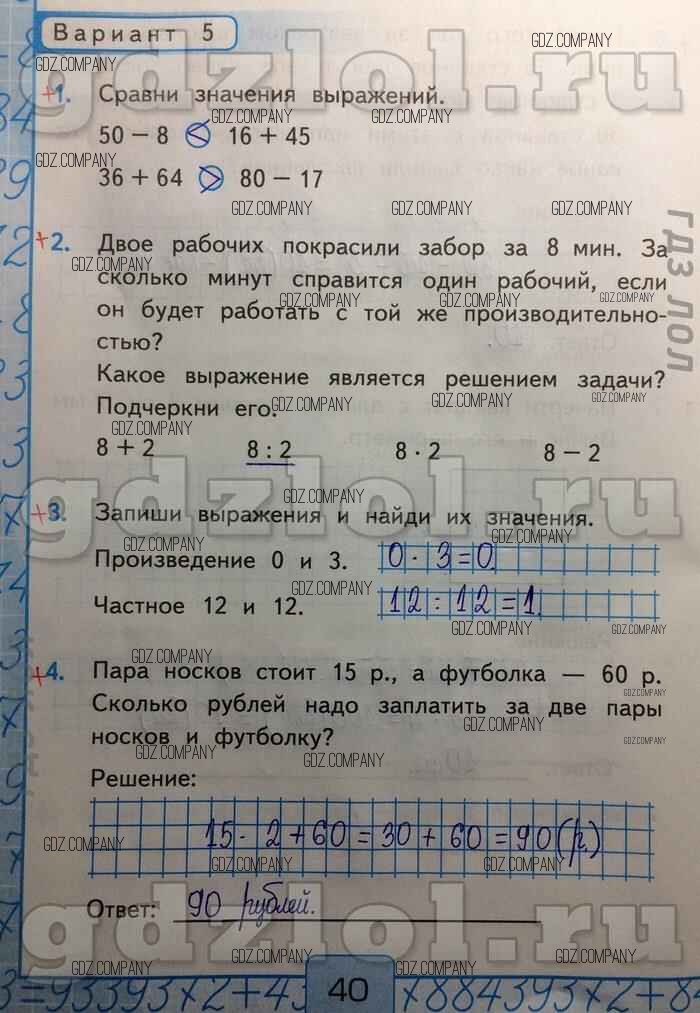 Вариант 5
+1. Сравни значения выражений.
50 − 8 < 16 + 45
36 + 64 > 80 − 17
+2. Двое рабочих покрасили забор за 8 мин. За
сколько минут справится один рабочий, если
он будет работать с той же производительно-
стью?
Какое выражение является решением задачи?
Подчеркни его.
8 + 2 8 : 2 8 · 2 8 − 2
+3. Запиши выражения и найди их значения.
Произведение 0 и 3. 0 · 3 = 0.
Частное 12 и 12. 12 : 12 = 1.
+4. Пара носков стоит 15 р., а футболка — 60 р.
Сколько рублей надо заплатить за две пары
носков и футболку?
Решение:
15 · 2 + 60 = 30 + 60 = 90 (р.)
Ответ: 90 рублей.
40
gdzlol.ru
гдз лол
GDZ.COMPANY